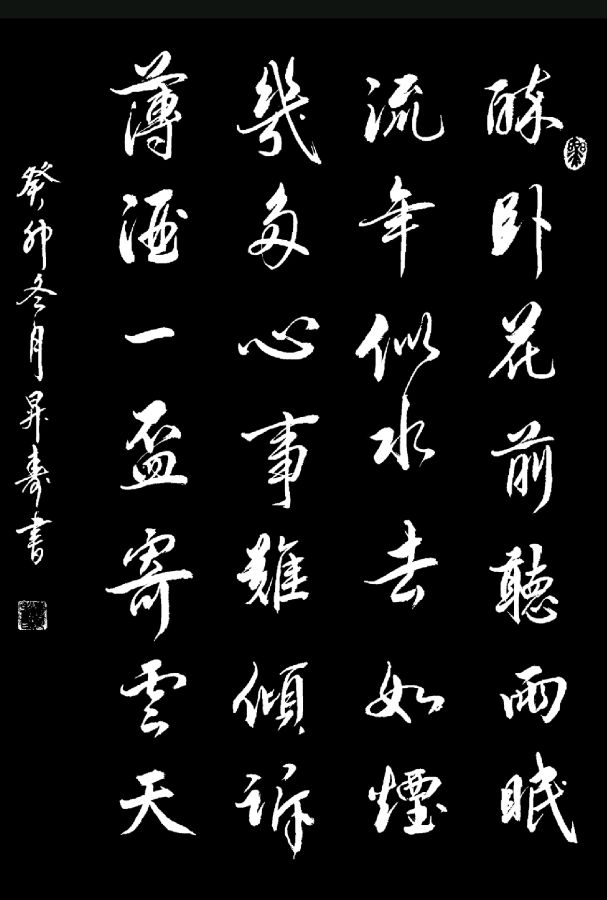 醉卧花前聽雨眠
流年似水去如煙
幾多心事難傾訴
薄酒一盃寄雲天
癸卯冬月昇壽書